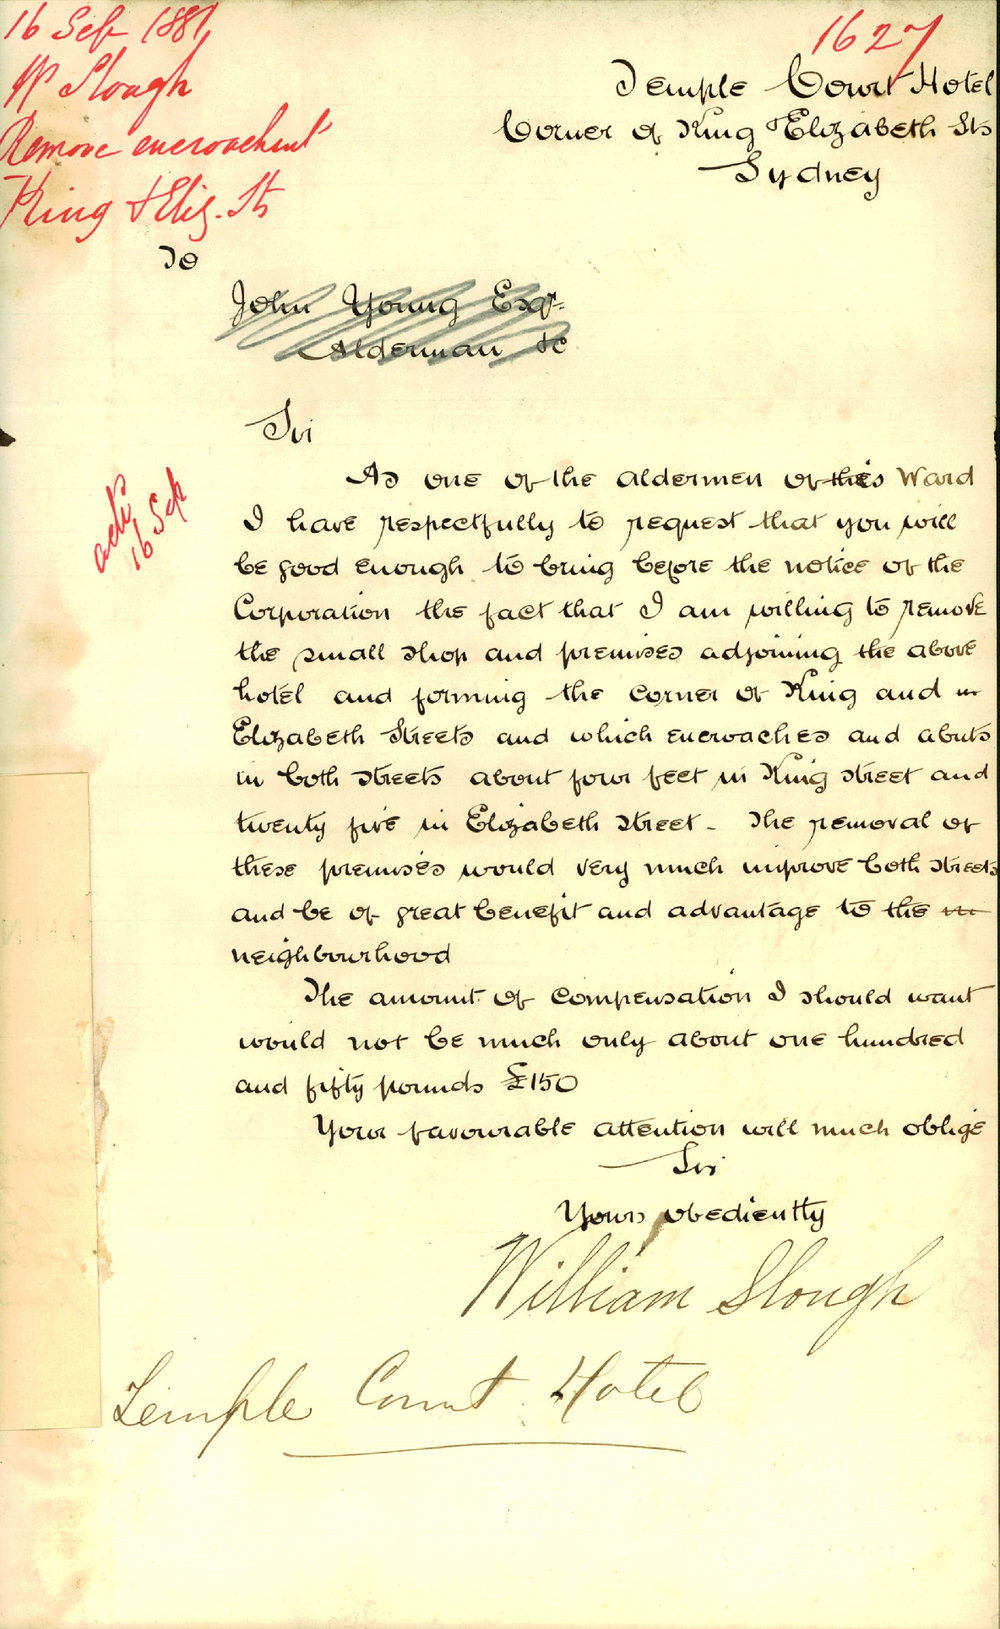 16 Sep 1881
W Slough
Remove encroachmt
King & Eliz. Sts
1627
Temple Court Hotel
Corner of King & Elizabeth Sts
Sydney
To
John Young Esqr.
Alderman &c
Sir
ackd
16 Sep
As one of the aldermen of this Ward
I have respectfully to request that you will
be good enough to bring before the notice of the
Corporation the fact that I am willing to remove
the small shop and premises adjoining the above
hotel and forming the corner of King and in
Elizabeth Streets and which encroaches and abuts
in both streets about four feet in King street and
twenty five in Elizabeth street - The removal of
these premises would very much improve both streets
and be of great benefit and advantage to the
neighbourhood
The amount of compensation I should want
would not be much only about one hundred
and fifty pounds £150
Your favourable attention will much oblige
Sir
Yours obediently
William Slough
Temple Court Hotel